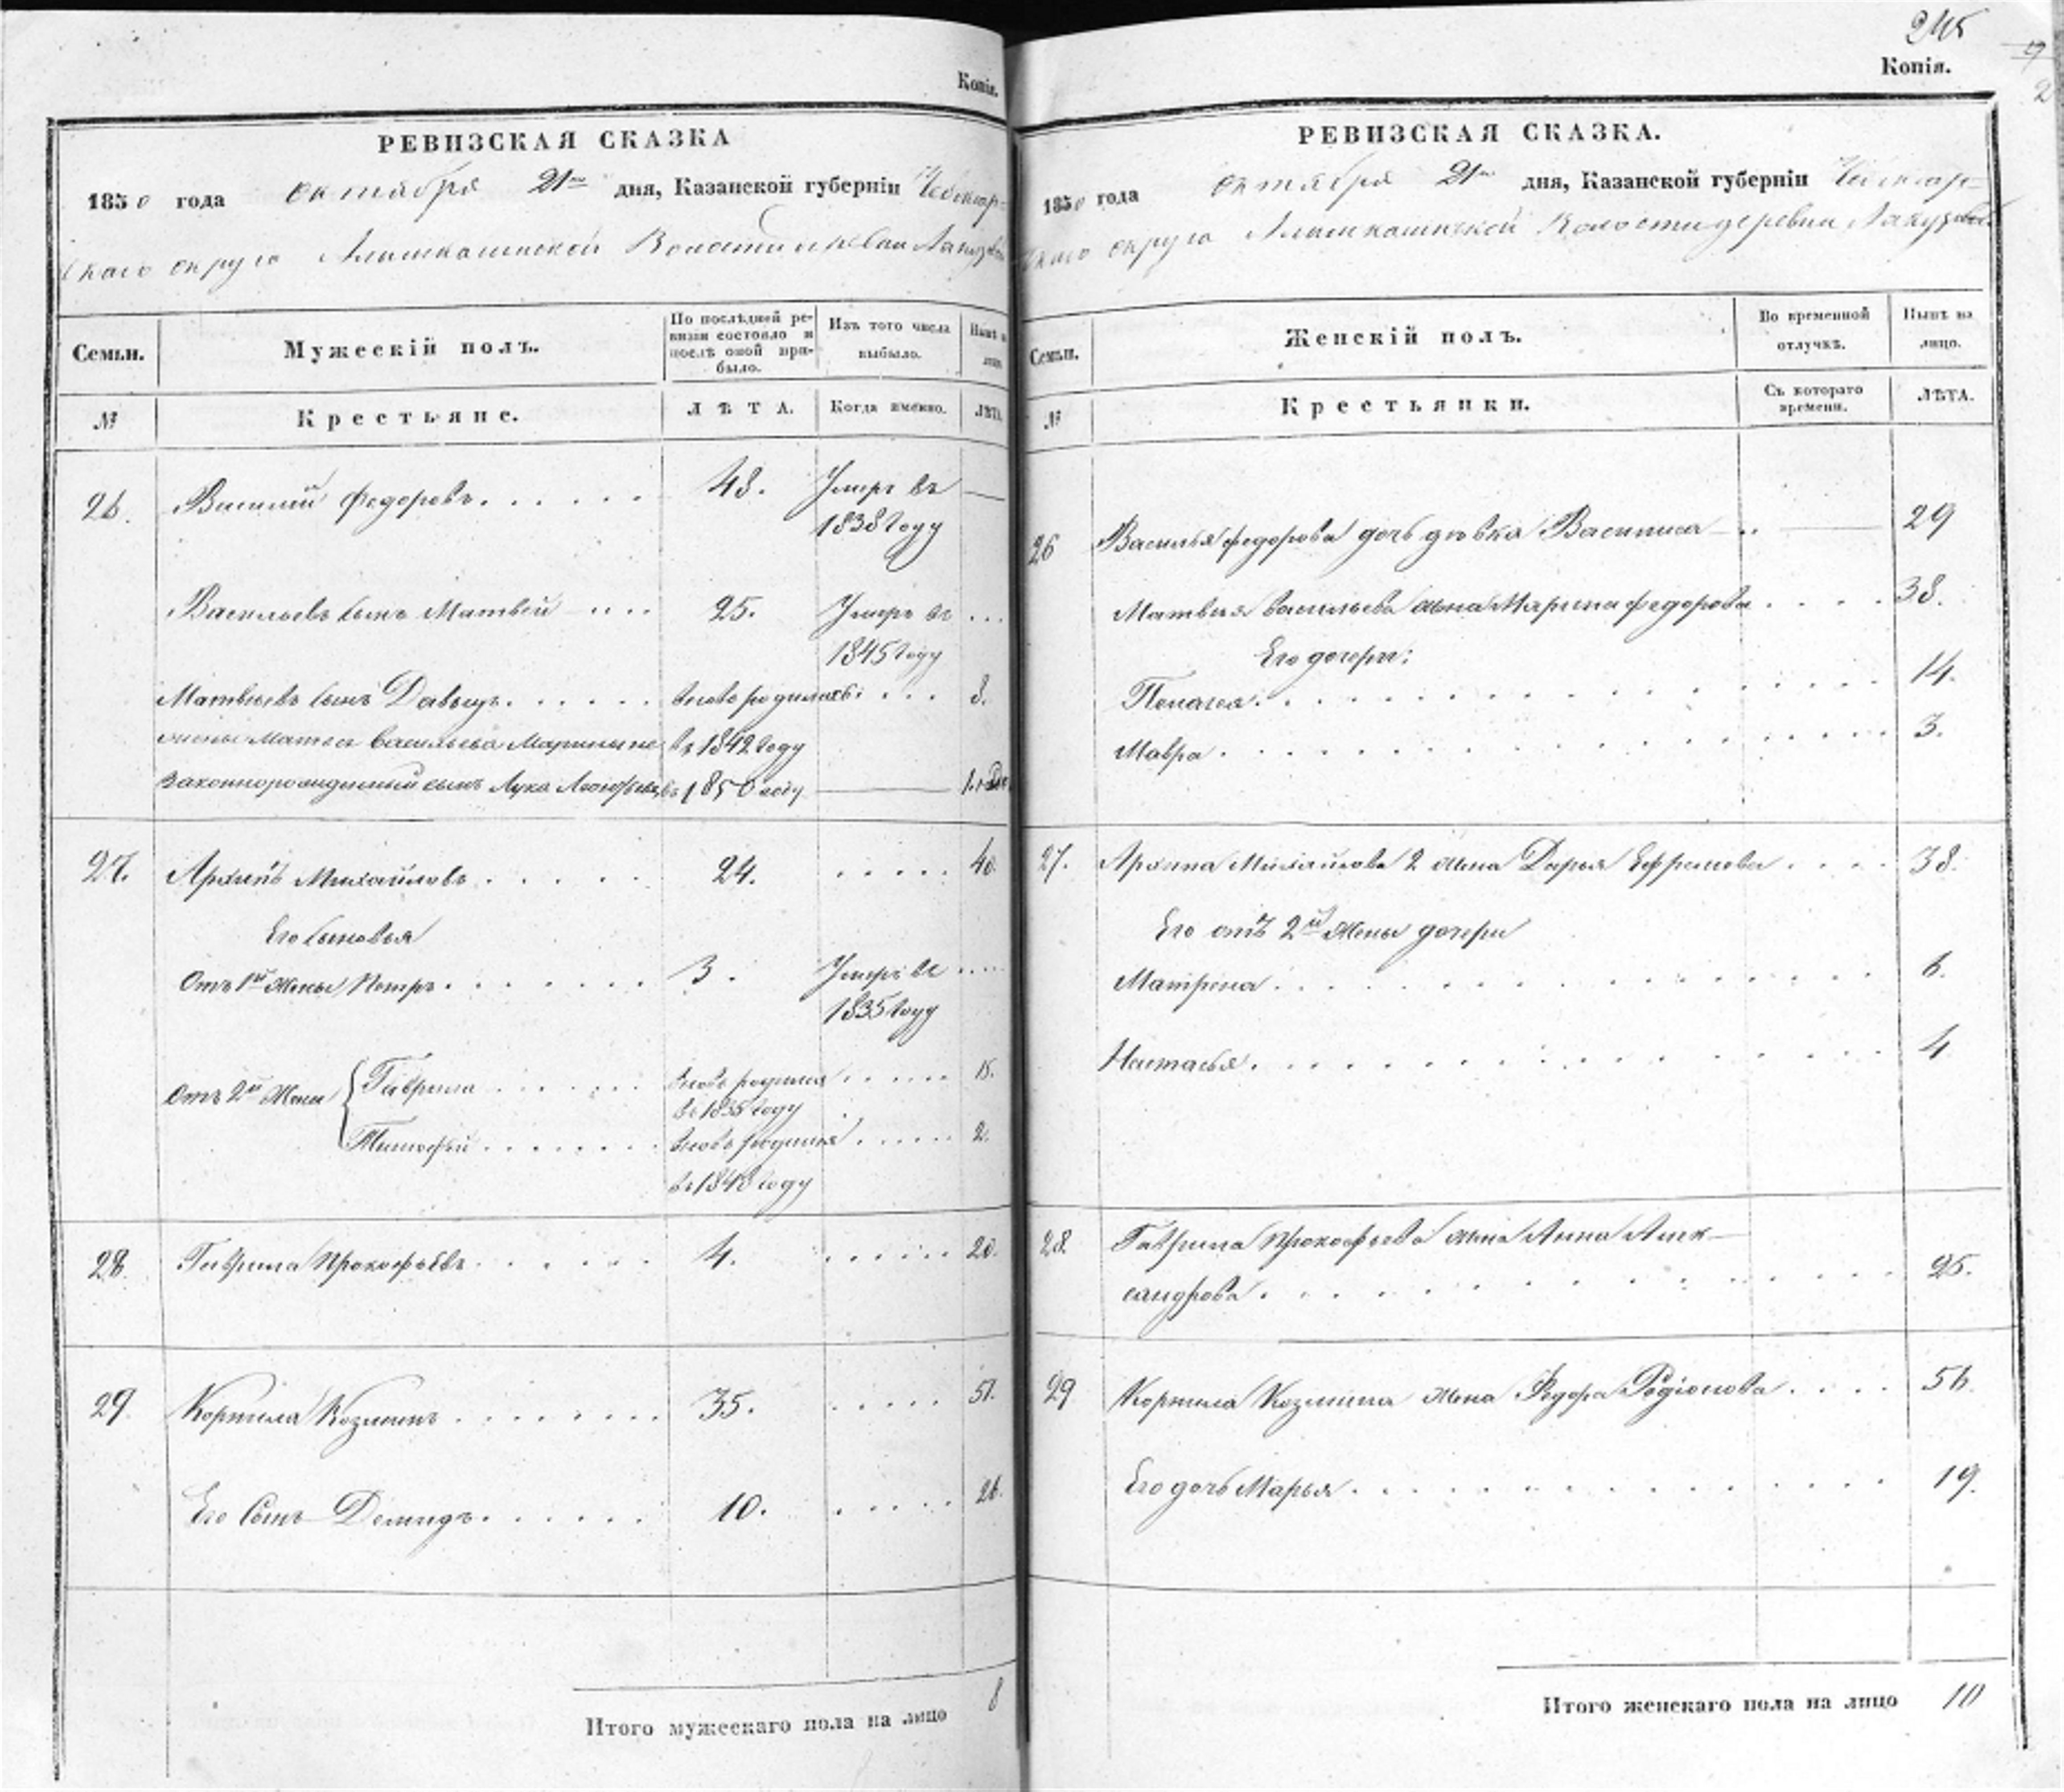 Копія.
РЕВИЗСКАЯ СКАЗКА
1850 года октября 21го дня, Казанской губерніи Чебоксар-
скаго округа Алымкасинской Волости деревни
Семьи.
Мужескій полъ.
По послѣдней ре-
визіи состояло и
послѣ оной при-
было.
Изъ того числа
выбыло.
Нынѣ на
лицо.
№
Крестьяне.
ЛѢТА.
Когда именно.
ЛѢТА.
26. Василій Федоровъ. 48. Умеръ въ
1838 году
Васильевъ сынъ Матвѣй 25. Умеръ въ
1845 году
Матвѣевъ сынъ Давыдъ. вновь родились. 8.
жены Матвея Васильева Марины не въ 1842 году
законнорожденный сынъ Лука въ 1850 году
27. Архипъ Михайловъ 24. 40.
Его сыновья
Отъ 1й жены Петръ. 3. Умеръ въ
1835 году
Отъ 2й жены Гаврила вновь родился 15.
въ 1835 году
Тимофей вновь родился 2.
въ 1848 году
28. Гаврила Прокофьевъ 4. 20.
29. Корнила Козминъ 35. 51.
Его Сынъ Демидъ. 10. 26.
Итого мужескаго пола на лицо 8
245
Копія.
РЕВИЗСКАЯ СКАЗКА.
1850 года октября 21го дня, Казанской губерніи Чебоксар-
скаго округа Алымкасинской Волости деревни
Семьи.
Женскій полъ.
Во временной
отлучкѣ.
Нынѣ на
лицо.
№
Крестьянки.
Съ котораго
времени.
ЛѢТА.
26 Василья Федорова дочь дѣвка Василиса 29
Матвѣя Васильева жена Марина Федорова 38.
Его дочери:
Пелагея. 14.
Мавра 3.
27. Архипа Михайлова 2 жена Дарья Ефремова 38.
Его отъ 2й жены дочери
Матрена 6.
Настасья. 4
28. Гаврила Прокофьева жена Анна Алек-
сандрова. 25.
29 Корнила Козмина жена Федора Родіонова 56.
Его дочь Марья. 19.
Итого женскаго пола на лицо 10